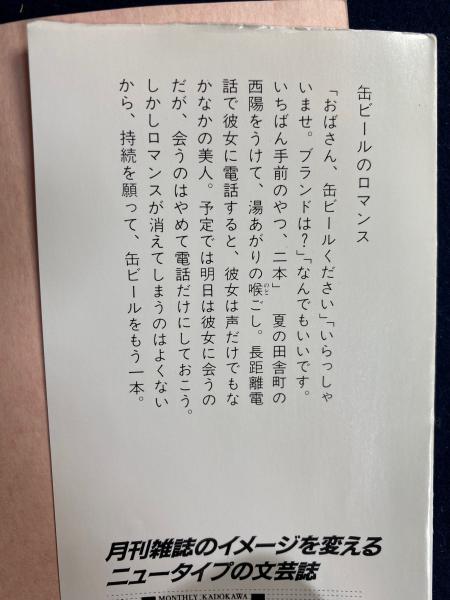 缶ビールのロマンス
「おばさん、缶ビールください」「いらっしゃ
いませ。ブランドは？」「なんでもいいです。
いちばん手前のやつ、二本」　夏の田舎町の
西陽をうけて、湯あがりの喉ごし。長距離電
話で彼女に電話すると、彼女は声だけでもな
かなかの美人。予定では明日は彼女に会うの
だが、会うのはやめて電話だけにしておこう。
しかしロマンスが消えてしまうのはよくない
から、持続を願って、缶ビールをもう一本。
月刊雑誌のイメージを変える
ニュータイプの文芸誌
MONTHLY KADOKAWA